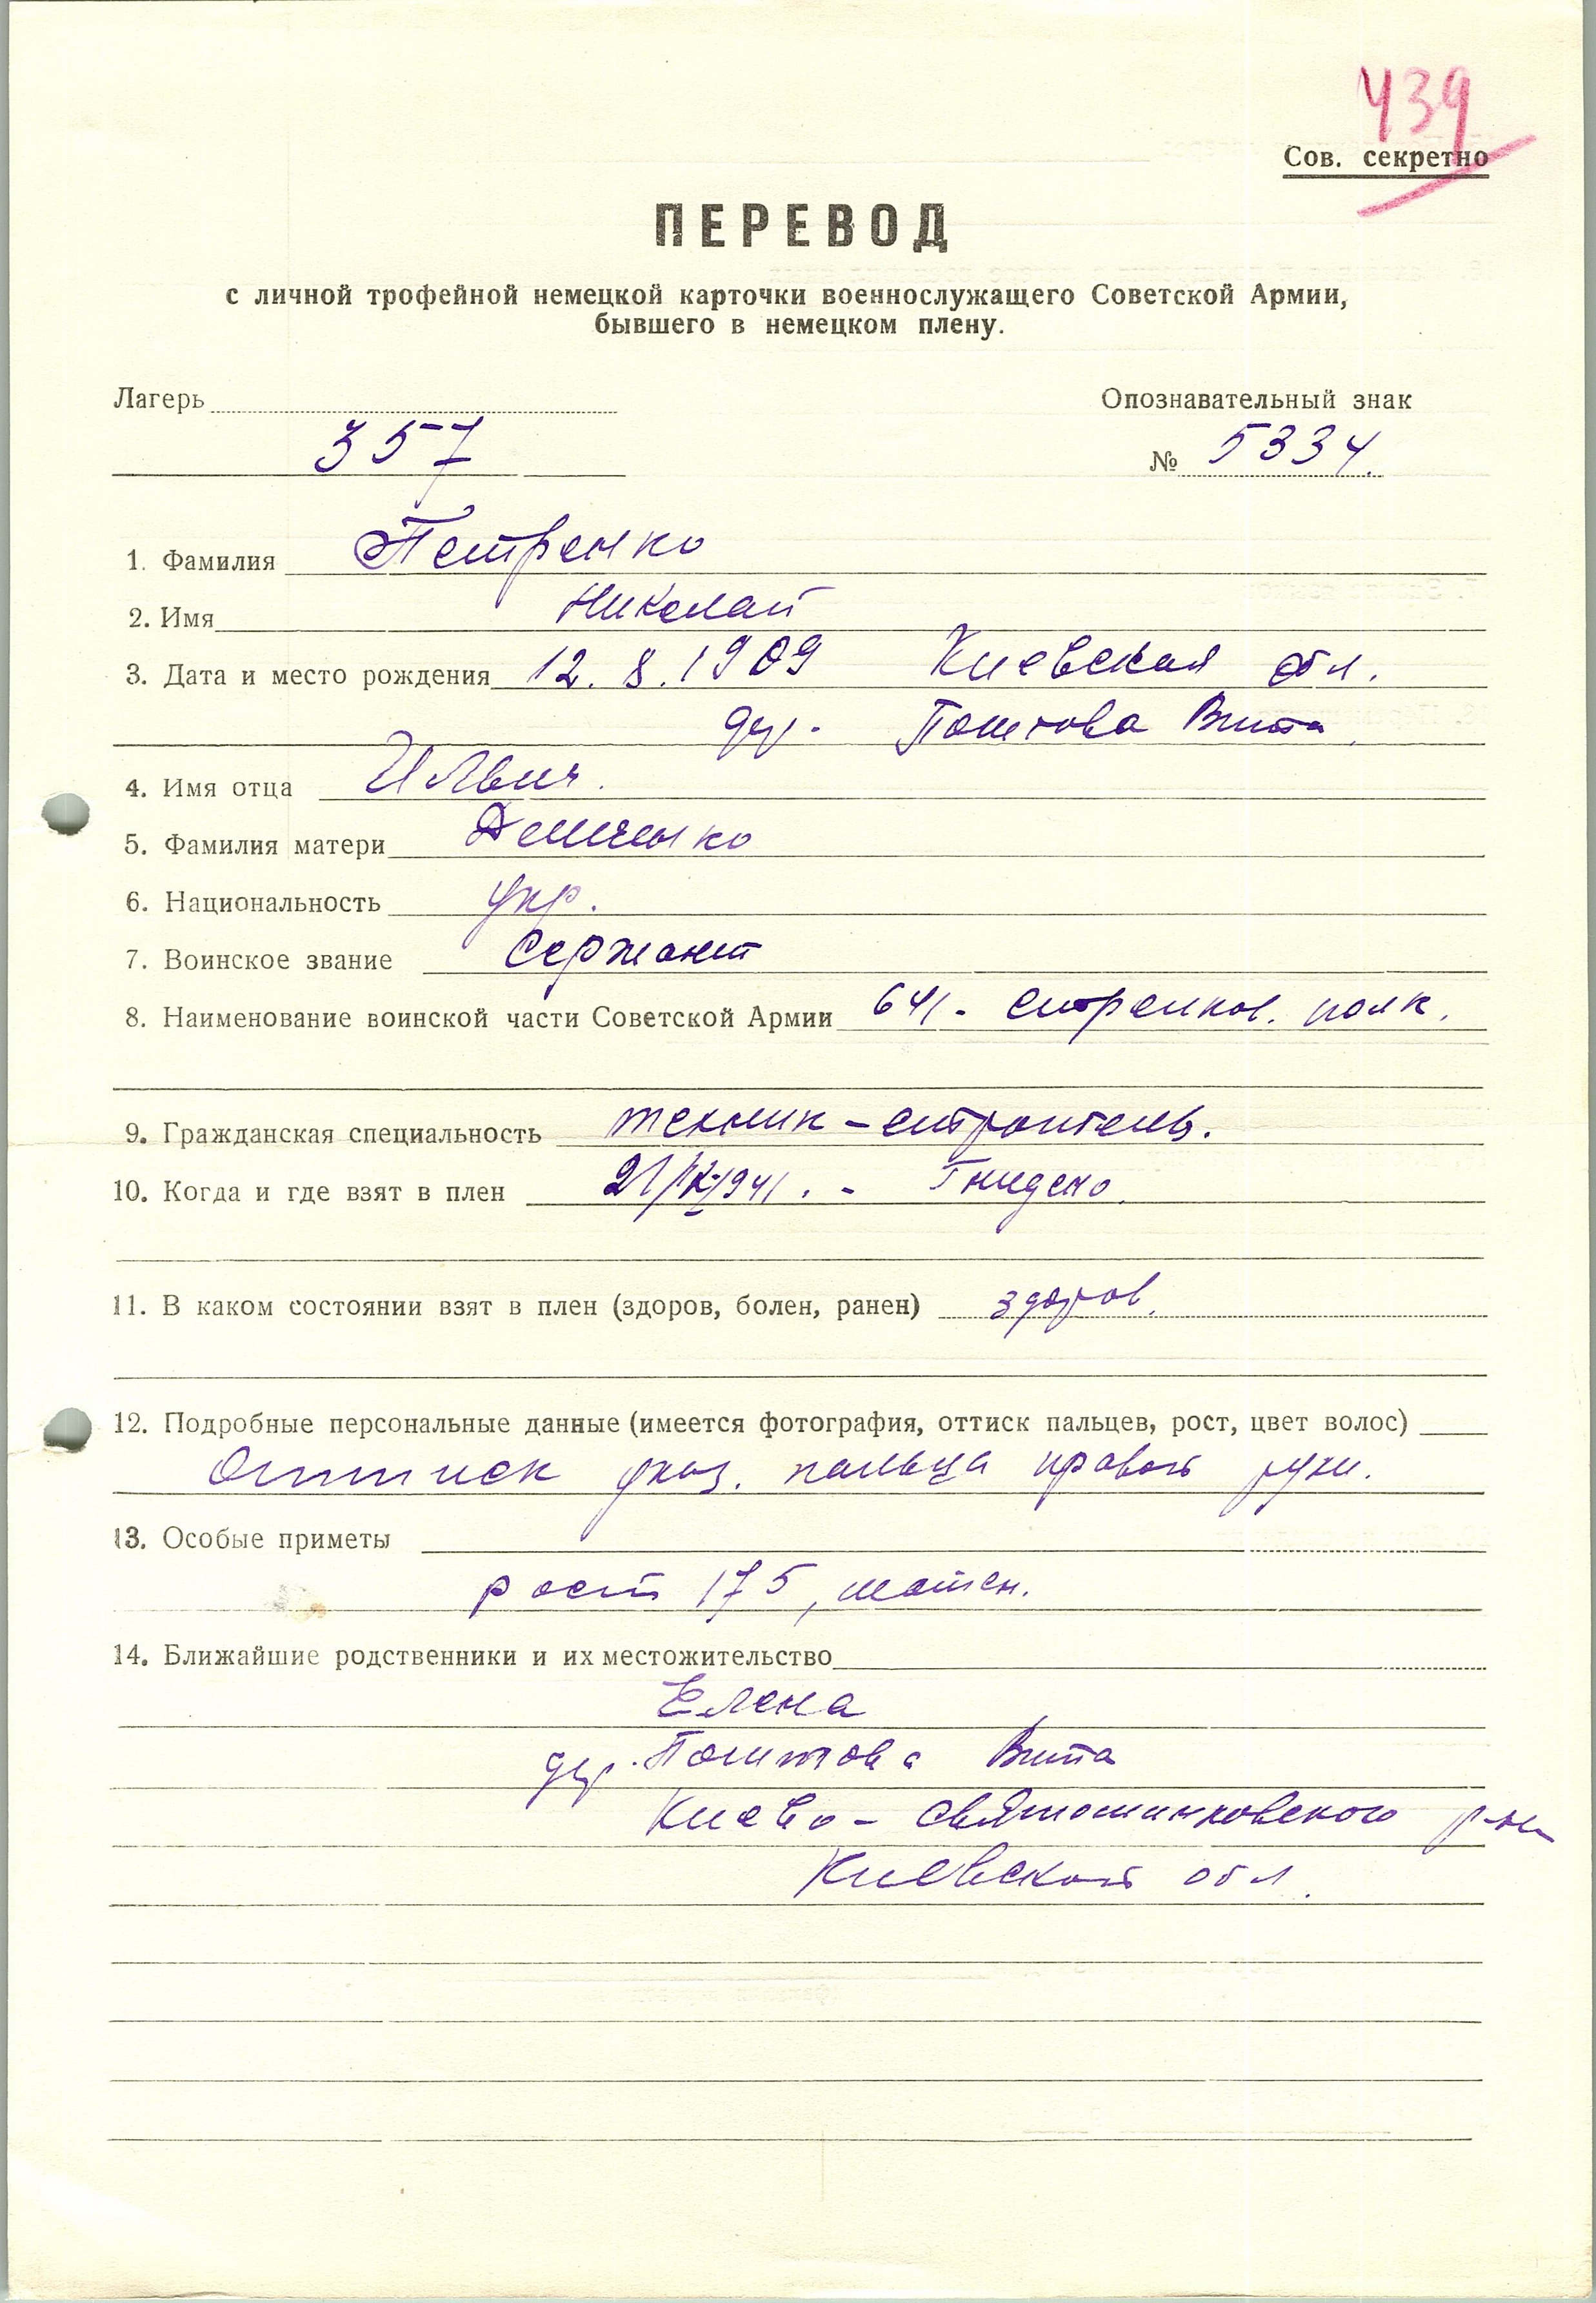 439
Сов. секретно
ПЕРЕВОД
с личной трофейной немецкой карточки военнослужащего Советской Армии,
бывшего в немецком плену.
Лагерь Опознавательный знак
357 № 5334.
1. Фамилия Петренко
2. Имя Николай
3. Дата и место рождения 12.8.1909 Киевская обл.
дер. Вита
4. Имя отца
5. Фамилия матери Демченко
6. Национальность укр.
7. Воинское звание Сержант
8. Наименование воинской части Советской Армии 641- стрелков. полк.
9. Гражданская специальность техник-строитель.
10. Когда и где взят в плен 21/IX/1941. -
11. В каком состоянии взят в плен (здоров, болен, ранен) здоров.
12. Подробные персональные данные (имеется фотография, оттиск пальцев, рост, цвет волос)
Оттиск указ. пальца правой руки.
13. Особые приметы
рост 175, шатен.
14. Ближайшие родственники и их местожительство
Елена
дер. Вита
Киево-Святошинковского р-на
Киевской обл.